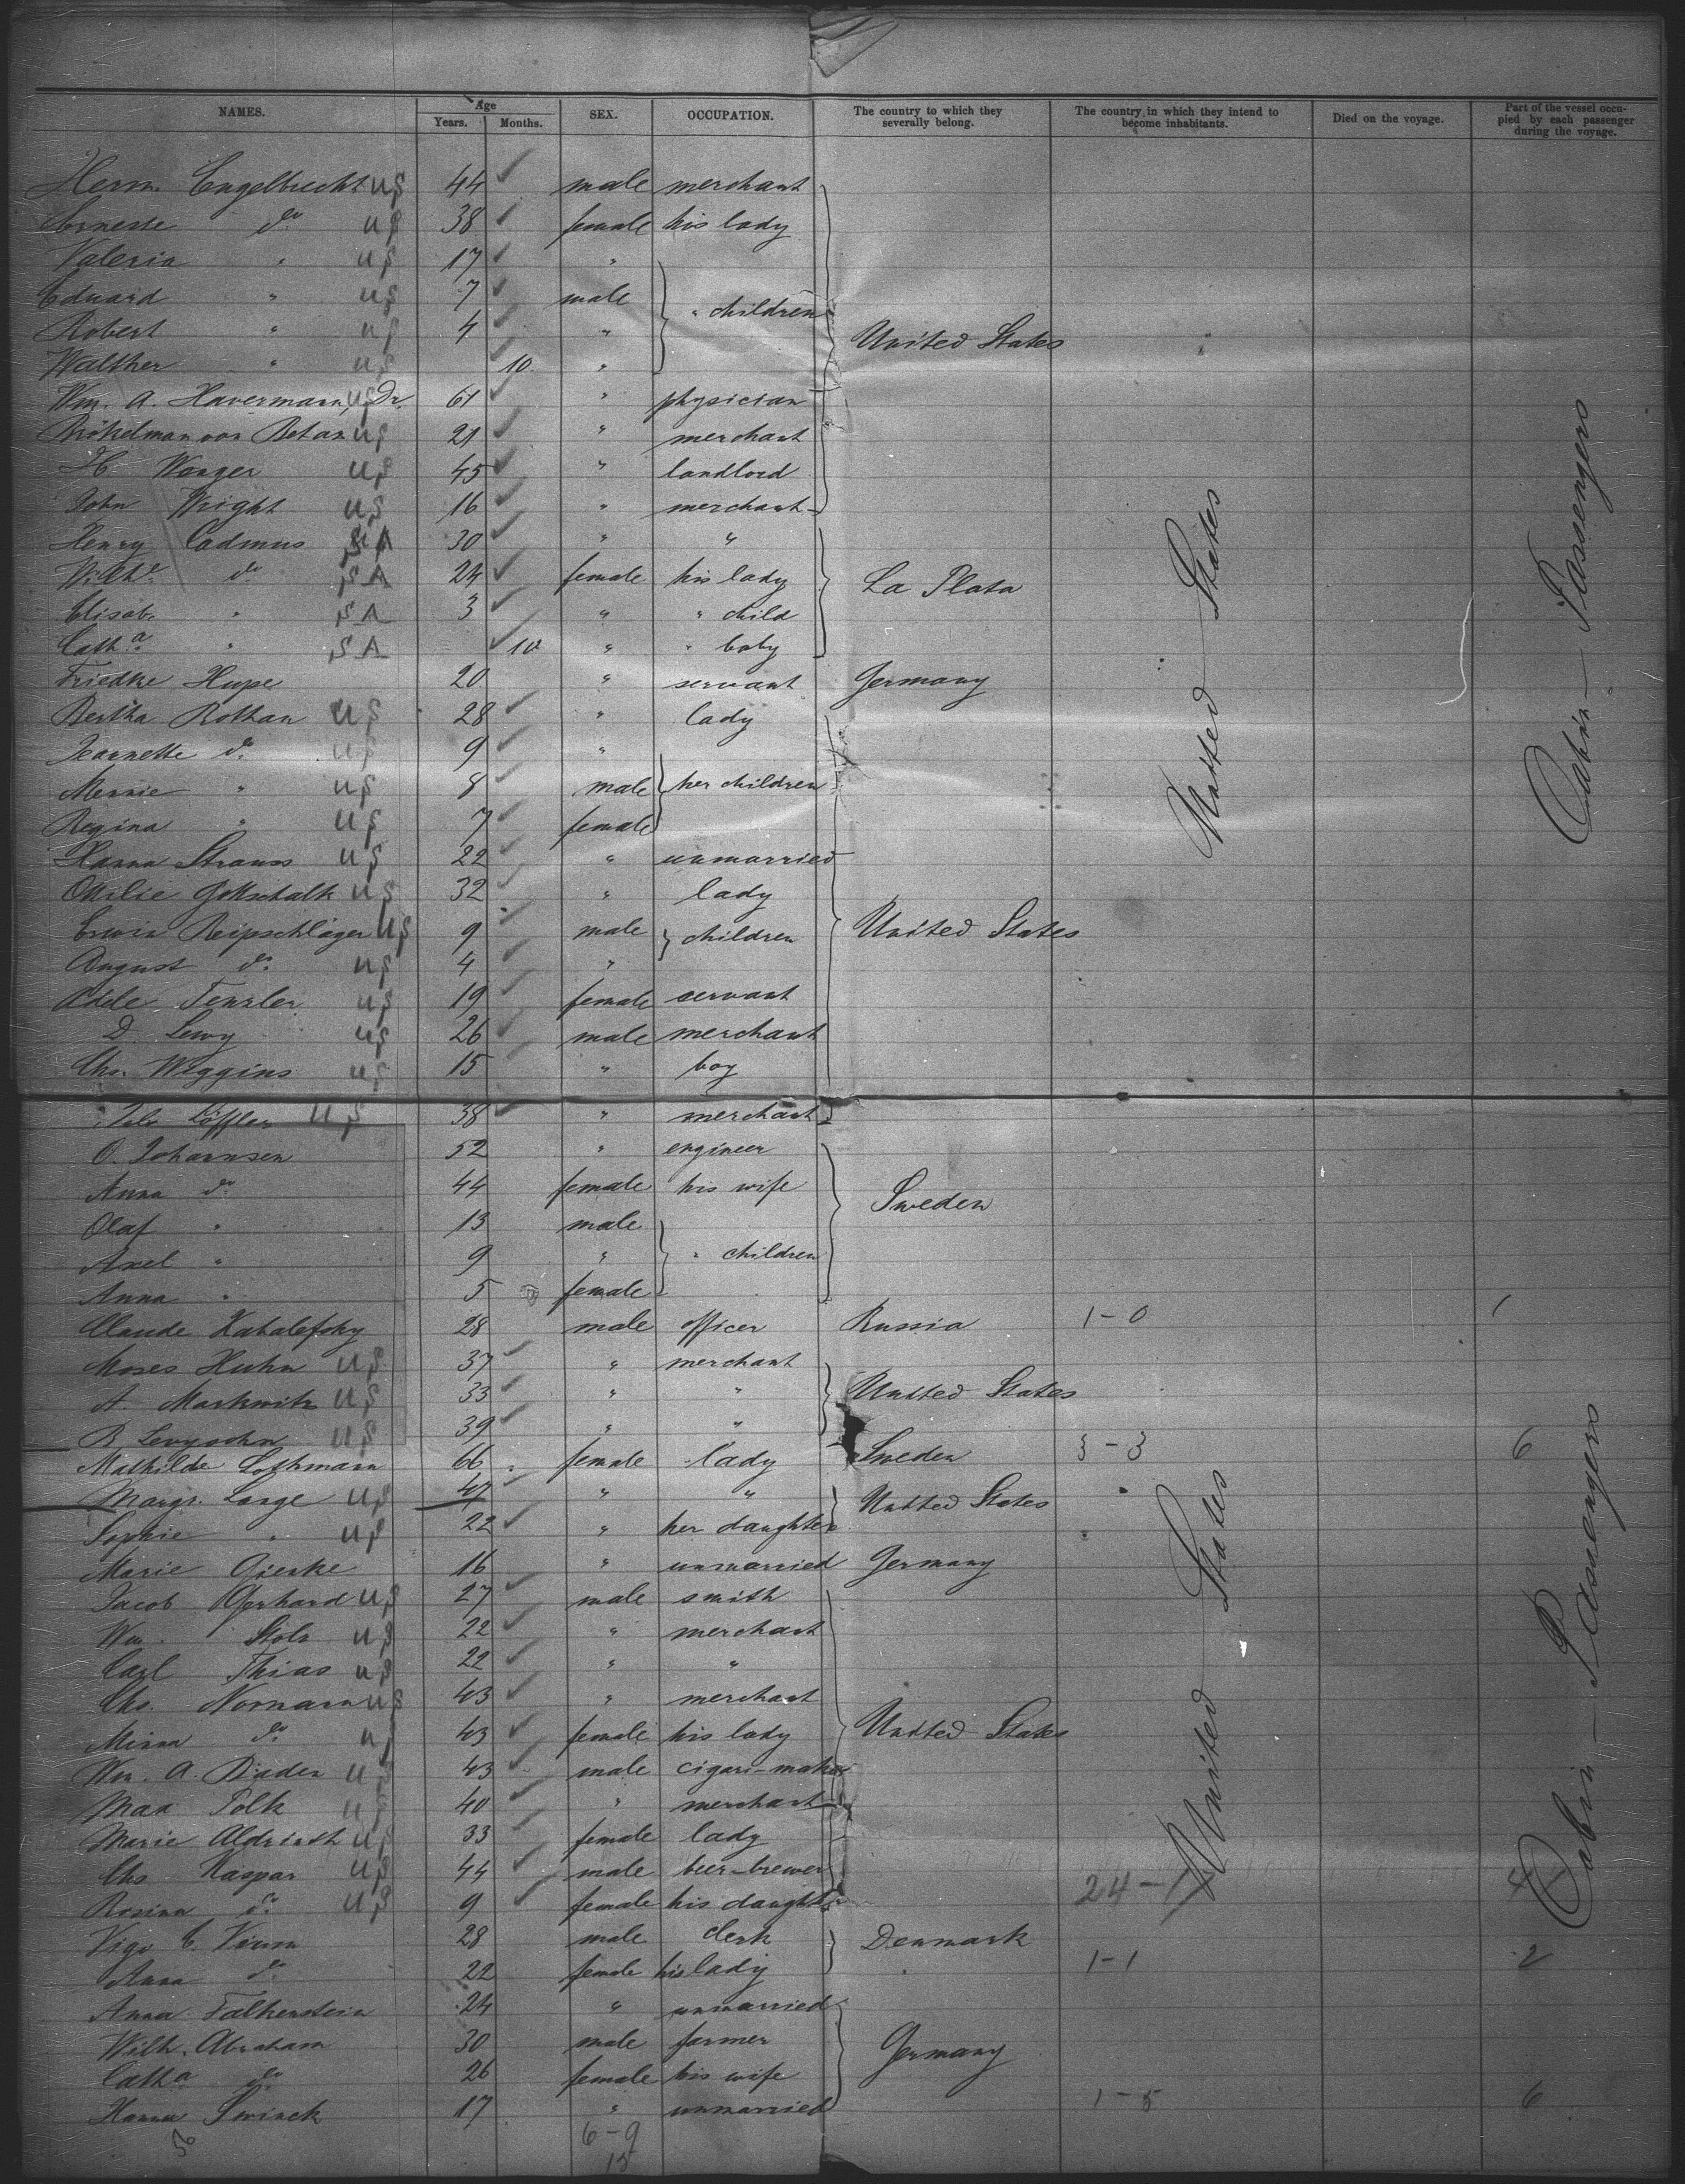 NAMES. Age Years. Months. SEX. OCCUPATION. The country to which they severally belong. The country in which they intend to become inhabitants. Died on the voyage. Part of the vessel occupied by each passenger during the voyage.
Herm. Engelbrecht US 44 male merchant
Erneste do US 38 female his lady
Valeria " US 17 "
Eduard " US 7 male
Robert " US 4 " " children United States "
Walther " US 10 "
Wm. A. Havermann, Dr. US 61 " physician
US 21 " merchant
H Wenger US 45 " landlord
John Wright US 16 " merchant
Henry Cadmus SA 30 " "
Wilhe. do SA 24 female his lady La Plata
Elisab. " SA 3 " " child
Catha. " SA 10 " " baby
Friedke Hupe 20 " servant Germany
Bertha Rothan US 28 " lady
Jeannette do US 9 "
Mennie " US 8 male her children
Regina " US 7 female
Hanna Strauss US 22 " unmarried
Ottilie Gottschalk US 32 " lady
Erwin Reipschläger US 9 male children United States
August do US 4 "
Adele Tenzler US 19 female servant
D. Lewy US 26 male merchant
Chs. Wiggins US 15 " boy
Löffler US 38 " merchant
O. Johannsen 52 " engineer
Anna do 44 female his wife Sweden
Olaf " 13 male
Axel " 9 " " children
Anna " 5 female
Claude Katalefsky 28 male officer Russia 1-0 1
Moses Huhn US 37 " merchant
A. Markwitz US 33 " " United States
B Levysohn US 39 " "
Mathilde Lothmann 66 female lady Sweden 3-3 6
Margr. Lange US 47 " " United States
Sophie " US 22 " her daughter
Marie Gierke 16 " unmarried Germany
Jacob Gerhard US 27 male smith
Wm. Stolz US 22 " merchant
Carl Thias US 22 " "
Chs. Normann US 43 " merchant
Minna do US 43 female his lady United States
Wm. A. Bader US 43 male cigar-maker
Max Polk US 40 " merchant
Marie Aldrinth US 33 female lady
Chs. Kaspar US 44 male beer-brewer
Rosina do US 9 female his daughter 24-17
Vigo C. 28 male clerk Denmark
Anna do 22 female his lady 1-1 2
Anna Falkenstein 24 " unmarried
Wilh. Abraham 30 male farmer Germany
Catha do 26 female his wife
Hanna Swinck 17 " unmarried 1-5 6
6-9
15
United States
Cabin-Passengers
United States
Cabin-Passengers